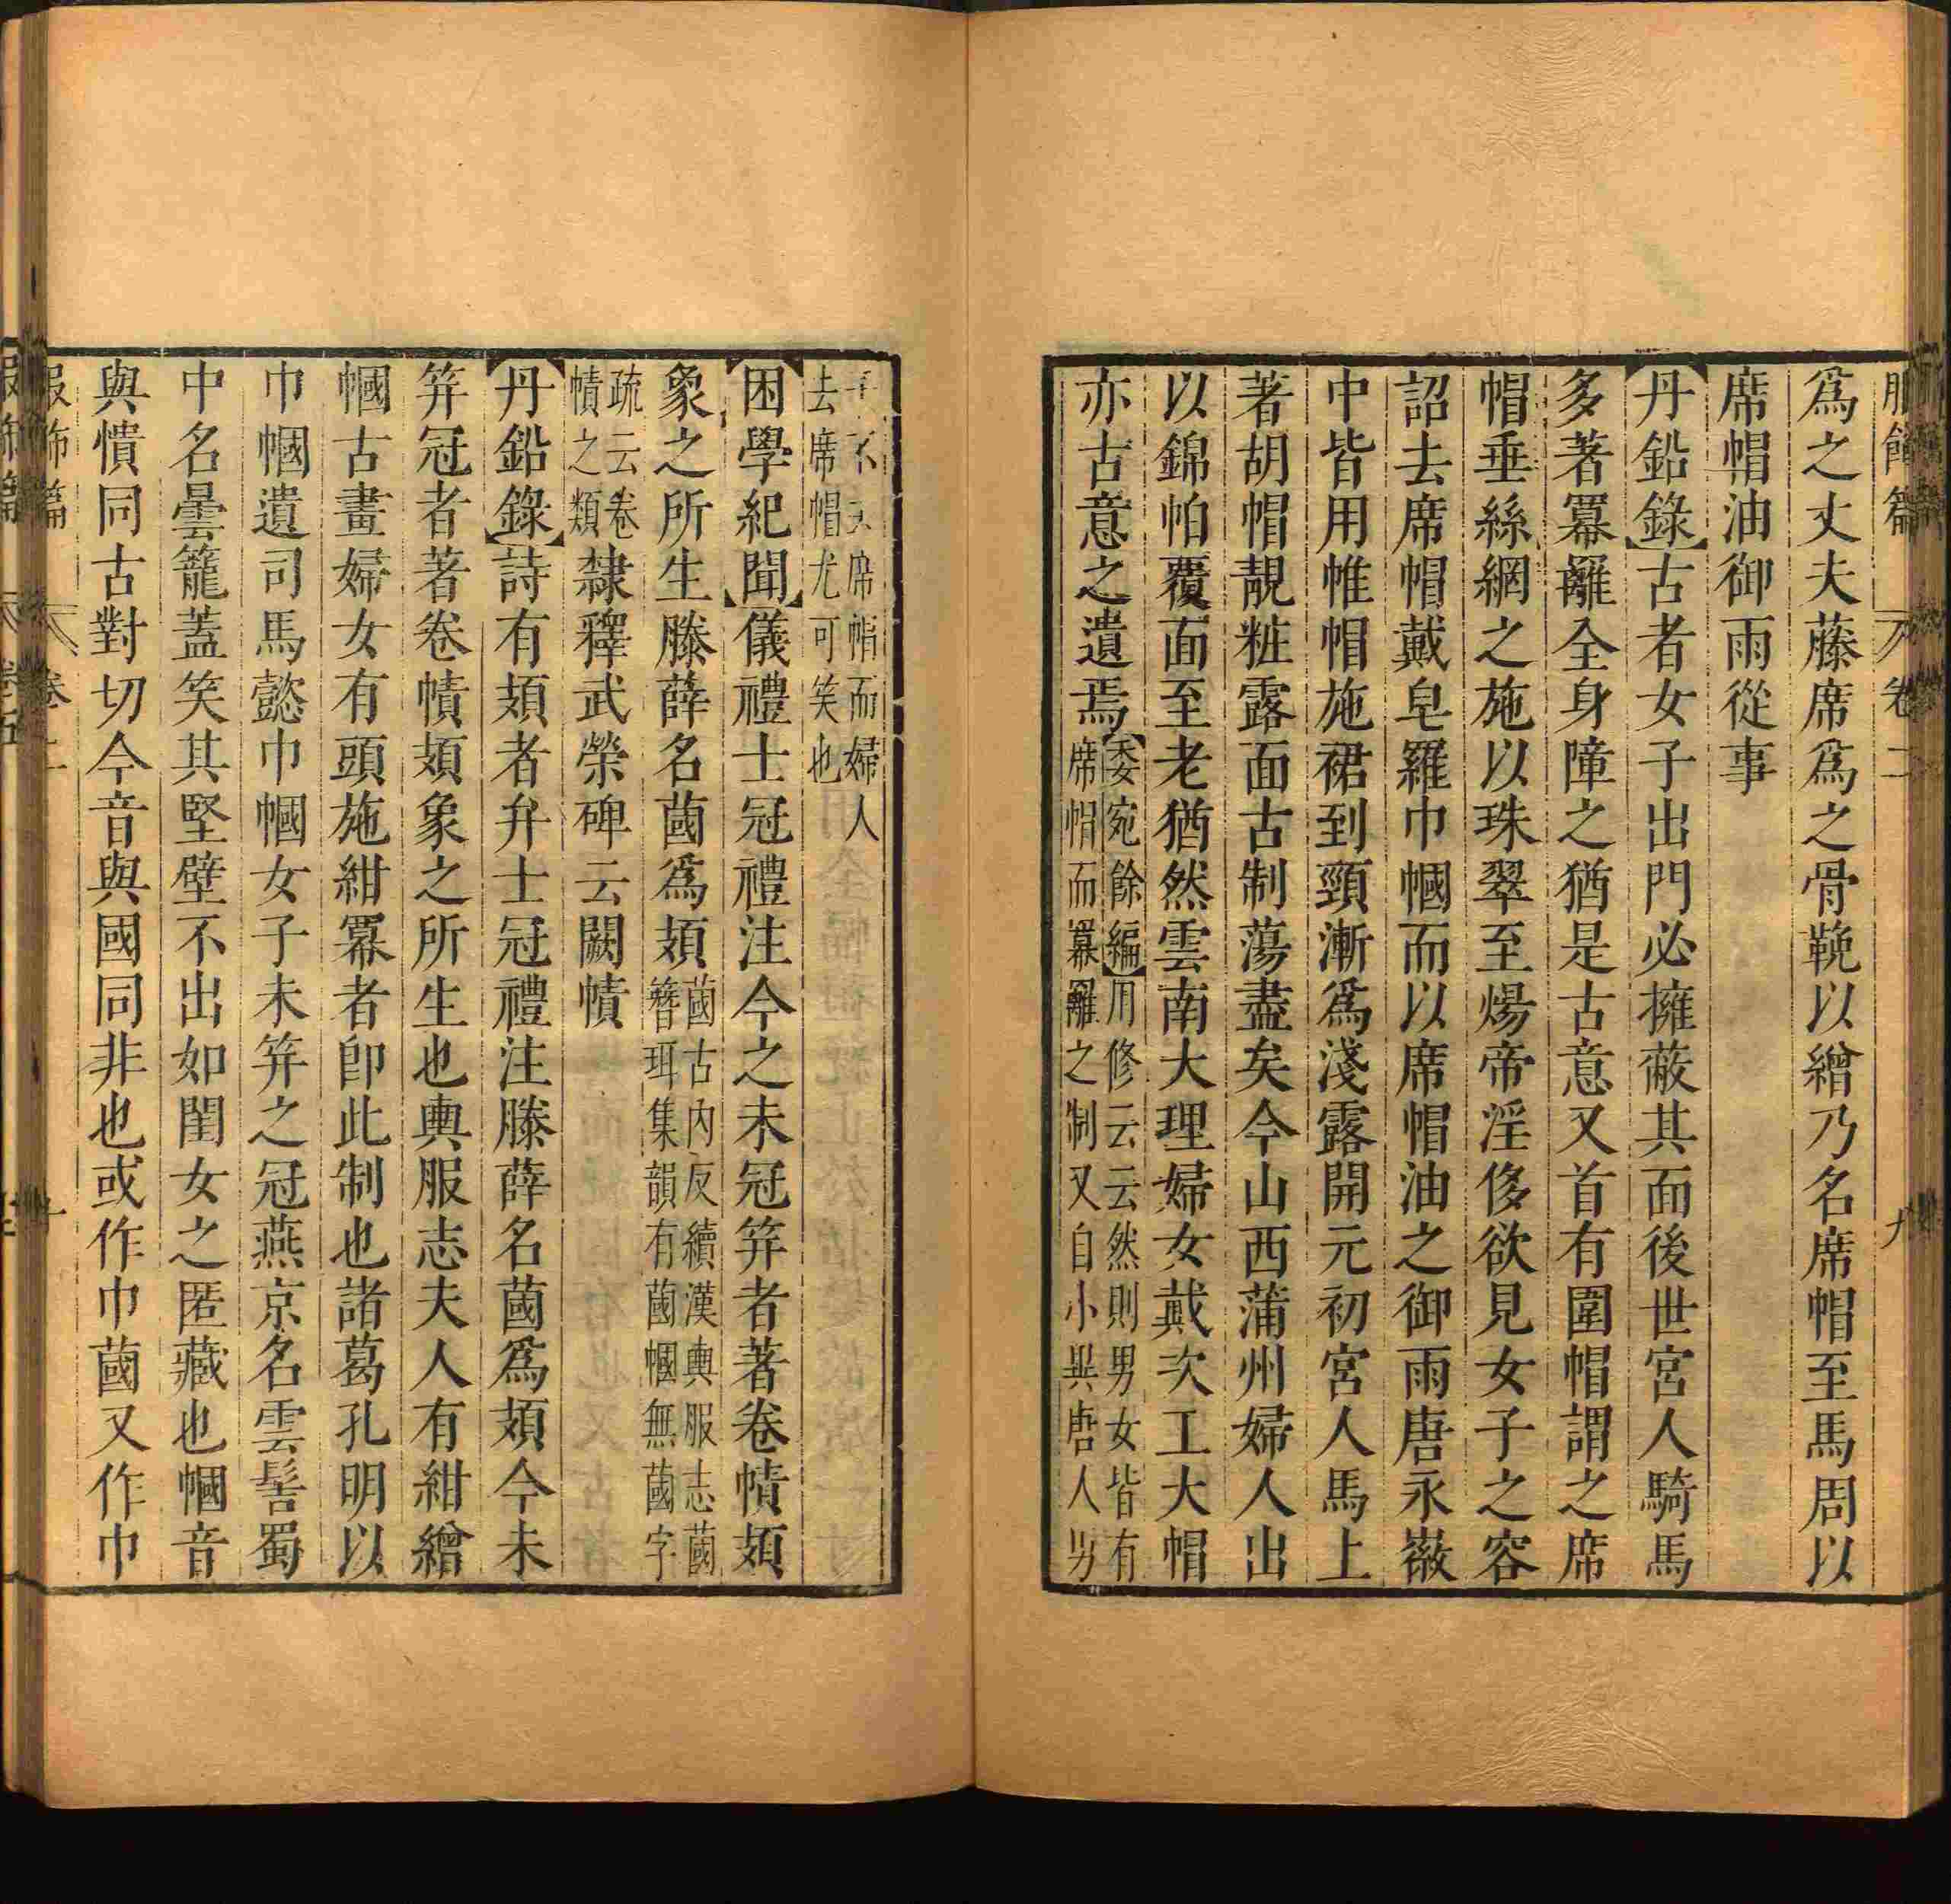 服飾篇 卷二 九
爲之丈夫藤席爲之骨鞔以繒乃名席帽至馬周以
席帽油御雨從事
【丹鉛錄】古者女子出門必擁蔽其面後世宮人騎馬
多著冪䍦全身障之猶是古意又首有圍帽謂之席
帽垂絲網之施以珠翠至煬帝淫侈欲見女子之容
詔去席帽戴皂羅巾幗而以席帽油之御雨唐永徽
中皆用帷帽施裙到頸漸爲淺露開元初宮人馬上
著胡帽靚粧露面古制蕩盡矣今山西蒲州婦人出
以錦帕覆面至老猶然雲南大理婦女戴次工大帽
亦古意之遺焉
【委宛餘編】用修云云然則男女皆有
席帽而冪䍦之制又自小異唐人男
席帽而婦人
去席帽尤可笑也
【困學紀聞】儀禮士冠禮注今之未冠笄者著卷幘頍
象之所生滕薛名蔮爲頍
蔮古內反續漢輿服志蔮
簪珥集韻有蔮幗無蔮字
疏云卷
幘之類
隸釋武榮碑云闕幘
【丹鉛錄】詩有頍者弁士冠禮注滕薛名蔮爲頍今未
笄冠者著卷幘頍象之所生也輿服志夫人有紺繒
幗古畫婦女有頭施紺冪者卽此制也諸葛孔明以
巾幗遺司馬懿巾幗女子未笄之冠燕京名雲髻蜀
中名曇籠蓋笑其堅壁不出如閨女之匿藏也幗音
與憒同古對切今音與國同非也或作巾蔮又作巾
服飾篇 卷二
服飾篇 卷五